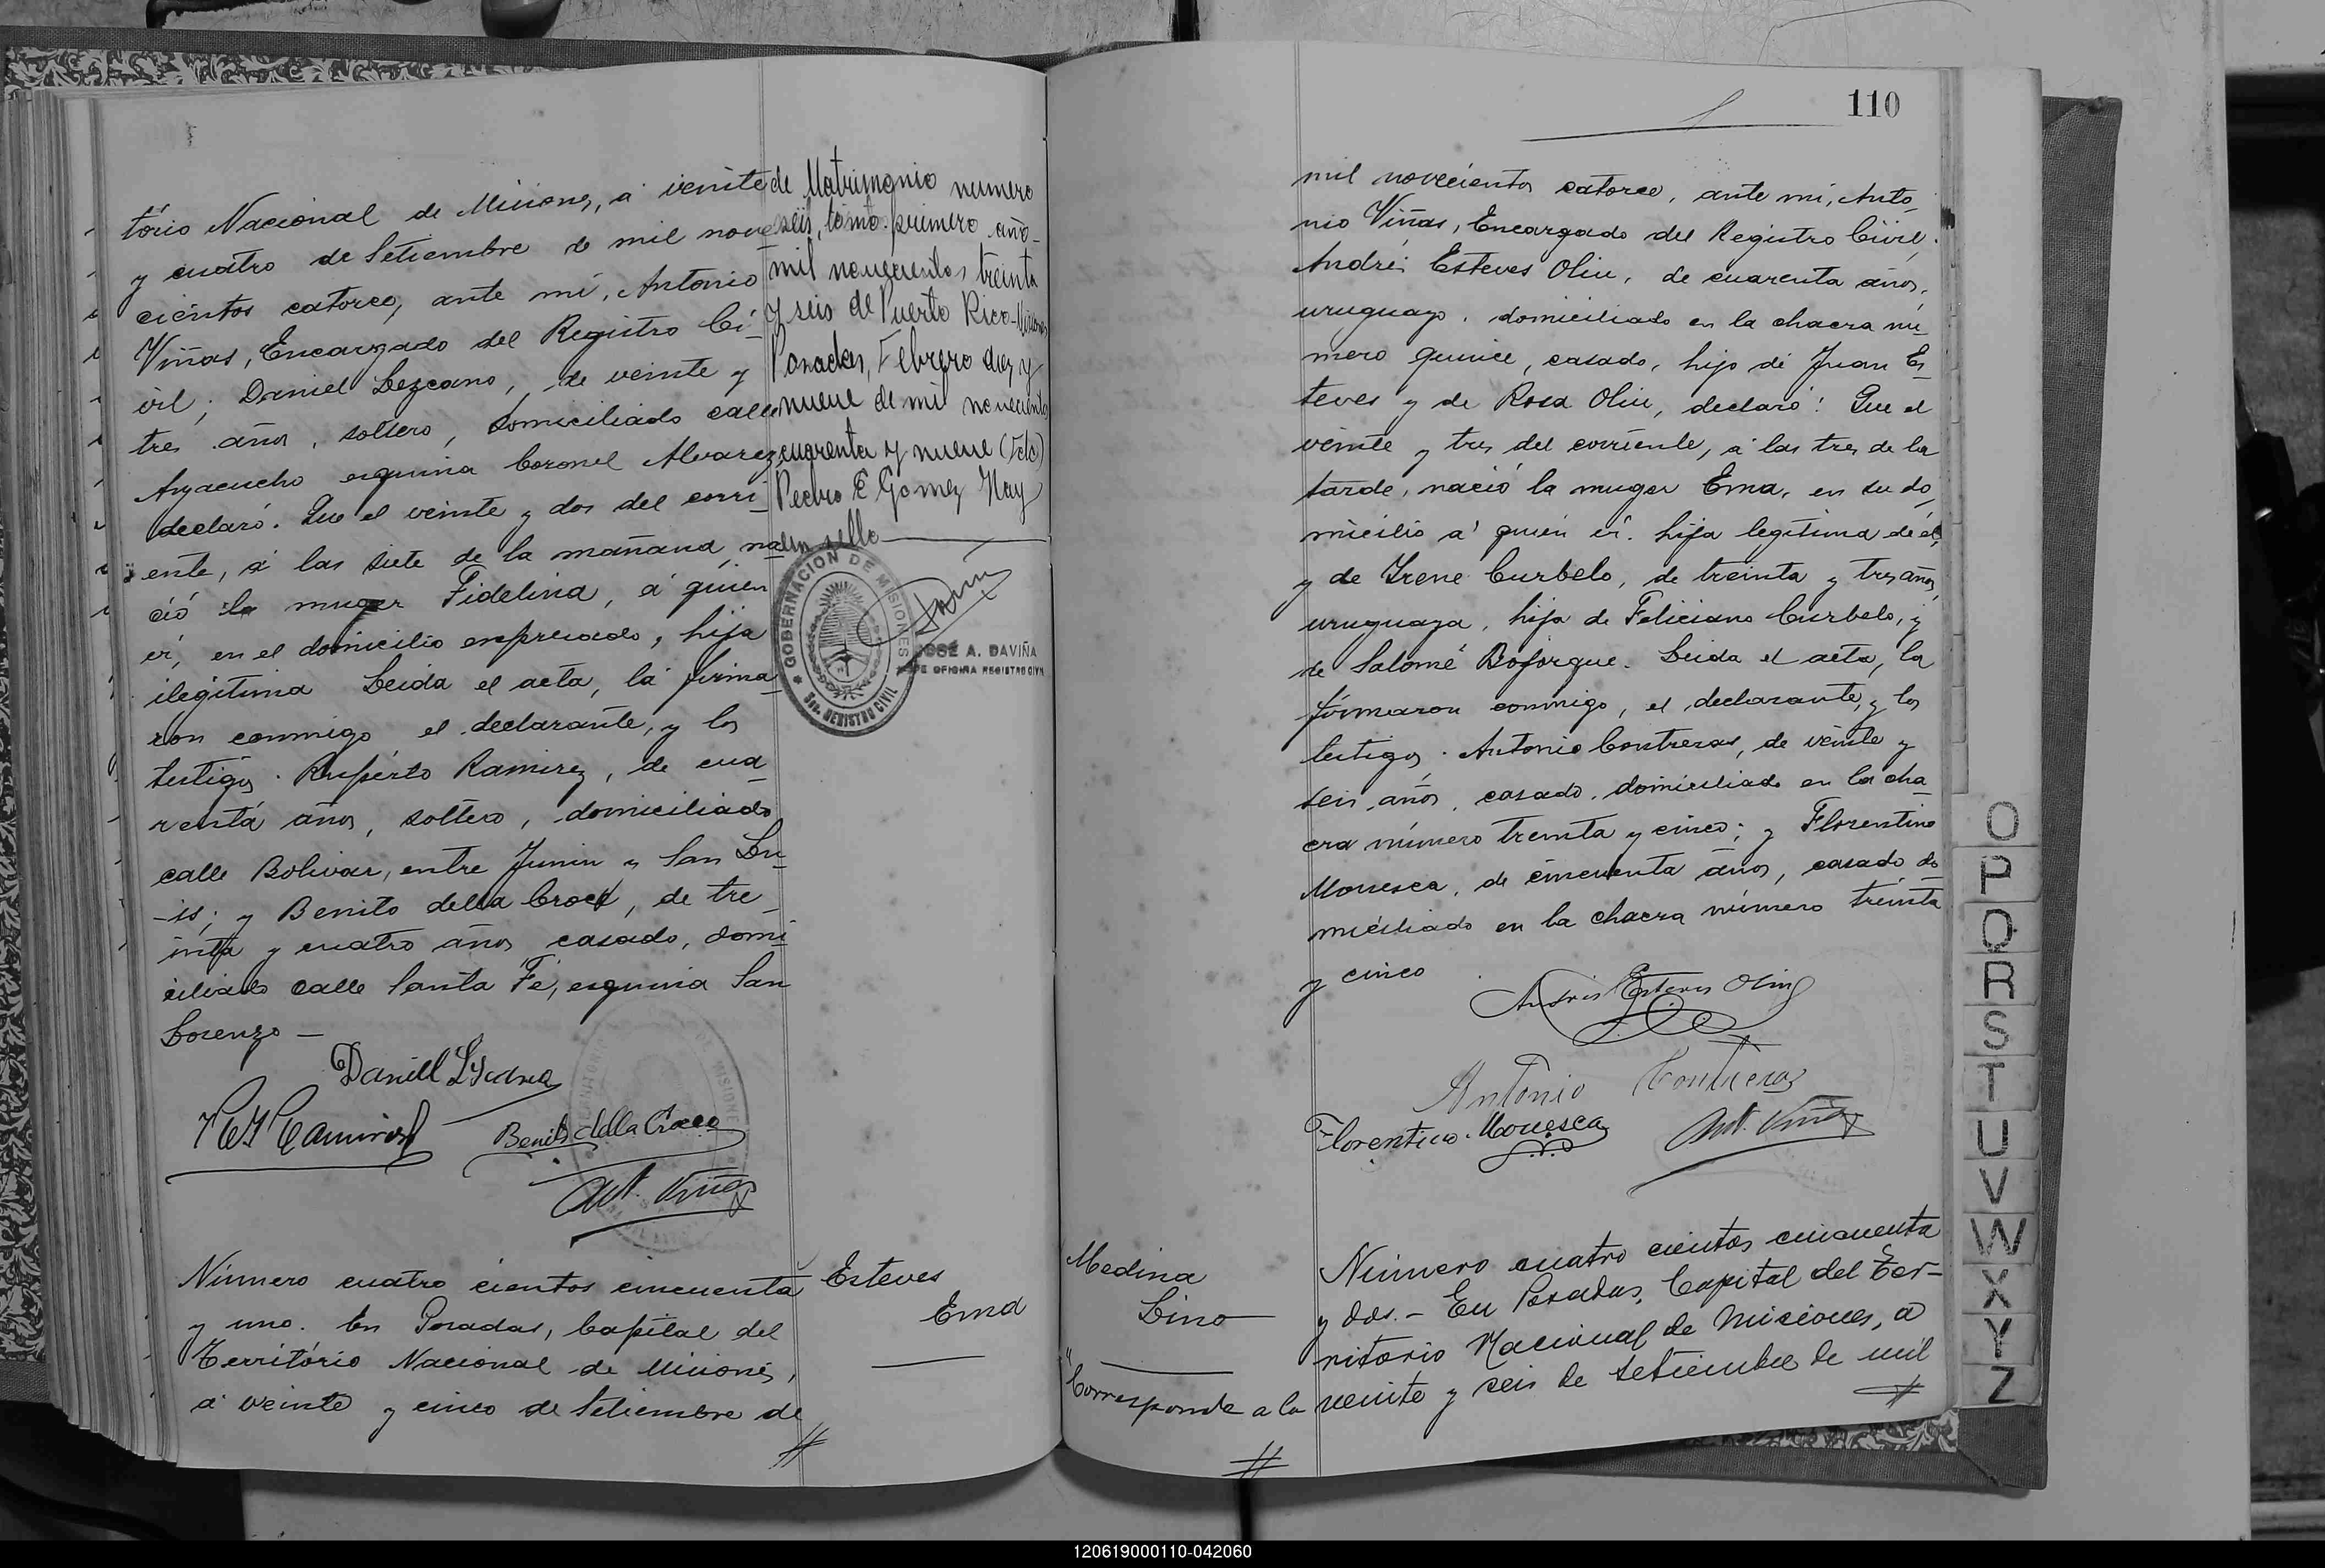 tório Nacional de Misiones, a veinte
y cuatro de Setiembre de mil nove
cientos catorce, ante mí, Antonio
Viñas, Encargado del Registro Ci-
vil; Daniel Lezcano, de veinte y
tres años, soltero, domiciliado calle
Ayacucho esquina Coronel Alvarez,
declaró: Que el veinte y dos del corri-
ente, á las siete de la mañana, na-
ció la muger Fidelina, á quien
ví, en el domicilio expresado, hija
ilegítima Leida el acta, la firma-
ron conmigo el declarante, y los
testigos: Ruperto Ramirez, de cua-
renta años, soltero, domiciliado
calle Bolivar, entre Junin y San Lu-
-is; y Benito della Croce, de tre-
inta y cuatro años casado, domi-
ciliado calle Santa Fé, esquina San
Lorenzo —
Daniel Lescano
Benito della Croce
Ant. Viñas
de Matrimonio numero
seis, tomo primero año-
mil novecientos treinta
y seis de Puerto Rico-Misiones
Posadas, Febrero diez y
nueve de mil novecientos
cuarenta y nueve (Fdo)
Pedro E Gomez Hay
un sello
GOBERNACION DE MISIONES
REGISTRO CIVIL
JOSÉ A. DAVIÑA
JEFE OFICINA REGISTRO CIVIL
Número cuatro cientos cincuenta
y uno. En Posadas, Capital del
Território Nacional de Misiones,
á veinte y cinco de Setiembre de
Esteves
Ema
110
mil novecientos catorce, ante mí, Anto-
nio Viñas, Encargado del Registro Civil;
Andrés Esteves Oliu, de cuarenta años,
uruguayo, domiciliado en la chacra nú-
mero quince, casado, hijo de Juan Es-
teves y de Rosa Oliu, declaró: Que el
veinte y tres del corriente, á las tres de la
tarde, nació la muger Ema, en su do-
micilio á quien ví. hija legítima de él,
y de Irene Curbelo, de treinta y tres años,
uruguaya, hija de Feliciano Curbelo, y
de Salomé Boforque. Leida el acta, la
firmaron conmigo, el declarante, y los
testigos: Antonio Contreras, de veinte y
seis años, casado, domiciliado en la cha-
cra número treinta y cinco; y Florentino
Monesca, de cincuenta años, casado, do-
miciliado en la chacra número treinta
y cinco
Andrés Esteves Oliu
Antonio Contreras
Florentino Monesca
Ant. Viñas
Medina
Lino
"Corresponde a la
Número cuatro cientos cincuenta
y dos.- En Posadas, Capital del Ter-
ritorio Nacional de Misiones, a
veinte y seis de Setiembre de mil
O
P
Q
R
S
T
U
V
W
X
Y
Z
120619000110-042060